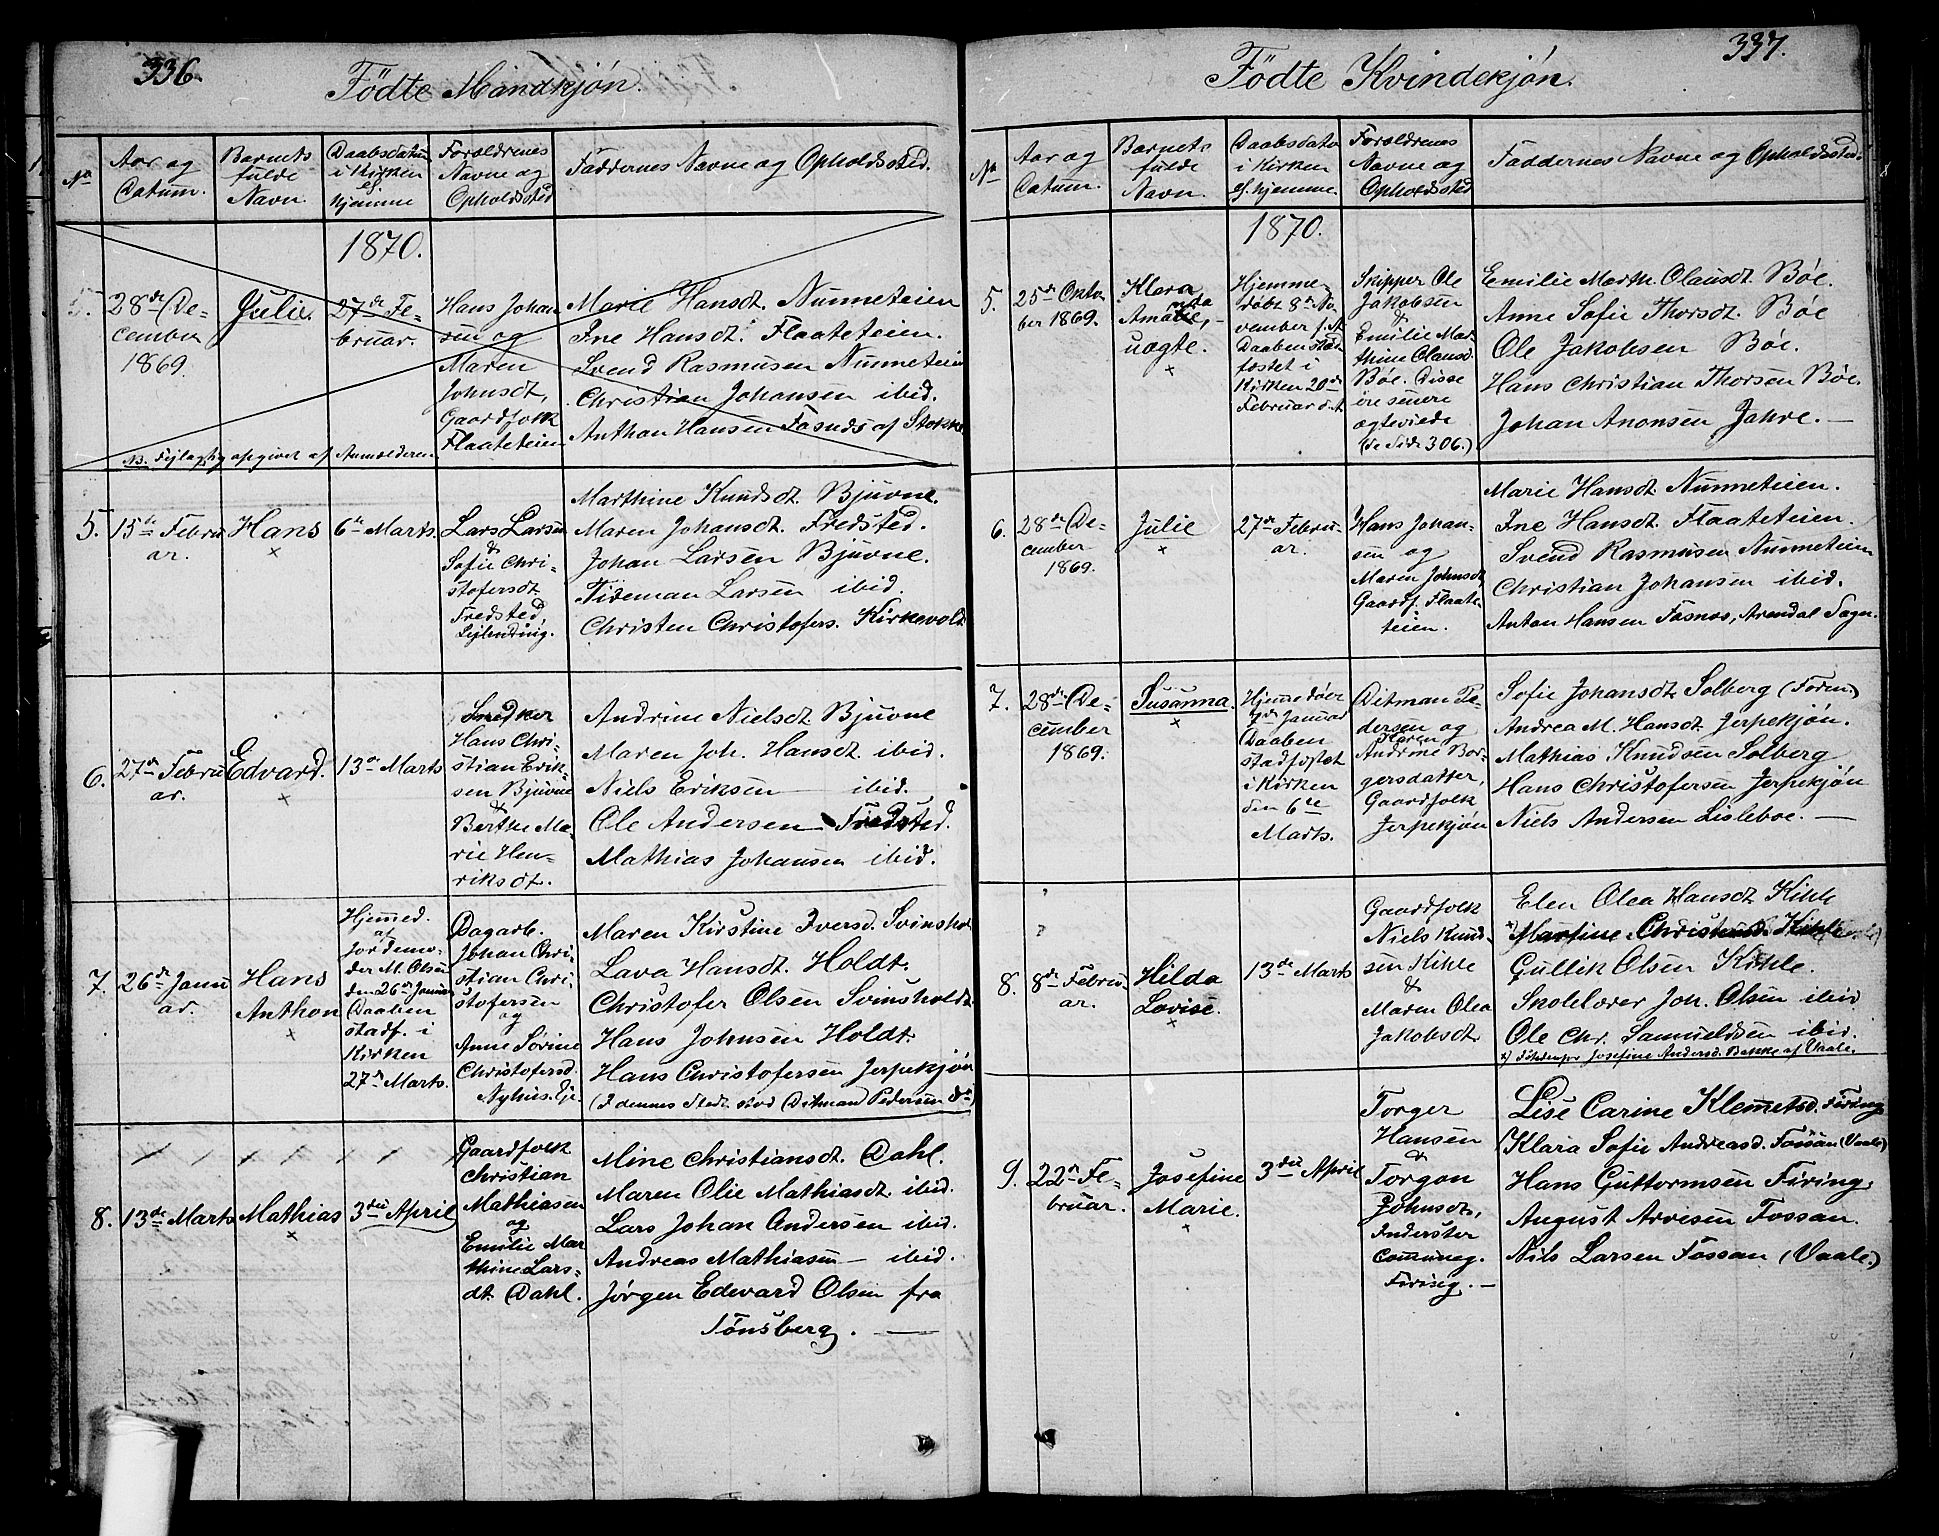 336.
Födte Mandkjön.
No
Aar og Datum.
Barnets fulde Navn.
Daabsdatum i Kirken el. hjemme
Foreldrenes Navne og Opholdssted
Faddernes Navne og Opholdssted.
1870.
5.
28de De-
cember
1869.
Julie.
27de Fe-
bruar.
Hans Johan
sen og
Maren
Johnsdt,
Gaardfolk
Flaateteien
Marie Hansdt. Nunneteien
Ine Hansdt. Flaateteien.
Svend Rasmusen Nunneteien
Christian Johansen ibid.
Anthon Hansen Fosnæs af Stokke
NB. Fejlagtig opgivet af Anmelderen.
5.
15de Febru
ar.
Hans
×
6te Marts.
Lars Larsen
&
Sofie Chri-
stofersdt.
Fredsted,
Lejlending.
Marthine Knudsdt. Bjuvne.
Maren Johansdt. Fredsted.
Johan Larsen Bjuvne.
Tideman Larsen ibid.
Christen Christofers. Kirkevold
6.
27de Febru
ar.
Edvard.
×
13de Marts
Snedker
Hans Chri-
stian Erik-
sen Bjuvne
&
Berthe Ma-
rie Hen-
riksdt.
Andrine Nielsdt. Bjuvne
Maren Joh. Hansdt. ibid.
Niels Eriksen — ibid.
Ole Andersen Fredsted.
Mathias Johansen ibid.
7.
26de Janu
ar.
Hans
Anthon
×
Hjemmed.
af
Jordemo-
der M. Olsen
den 26de Januar
Daaben
stadf. i
Kirken
27de Marts.
Dagarb.
Johan Chri-
stian Chri-
stofersen
og
Anne Sörine
Christofersd.
Nyhus. Eje
Maren Kirstine Iversd. Svinshol
Lava Hansdt. Holdt.
Christofer Olsen Svinsholdt
Hans Johnsen Holdt.
Hans Christofersen Jerpekjön
(I dennes Sted stod Ditman Pedersen do)
8.
13de Marts
Mathias
×
3die April
Gaardfolk
Christian
Mathiasen
og
Emilie Mar
thine Lars-
dt. Dahl.
Mine Christiansdt. Dahl.
Maren Olie Mathiasdt. ibid.
Lars Johan Andersen ibid.
Andreas Mathiasen — ibid.
Jörgen Edevard Olsen fra
Tönsberg. —
337.
Födte Kvindekjön.
No
Aar og Datum.
Barnets fulde Navn.
Daabsdato i Kirken el. hjemme.
Foreldrenes Navne og Opholdssted
Faddernes Navne og Opholdssted.
1870.
5.
25de Okto
ber 1869.
Klara
Amanda,
uægte.
×
Hjemme
döbt 8de No
vember f. A.
Daaben stad
fæstet i
Kirken 20de
Februar d. A
Skipper Ole
Jakobsen
&
Emilie Mar
thine Olausd.
Böe. Disse
ere senere
egteviede
(se Side 306.)
Emilie Marth. Olausdt. Böe.
Anne Sofie Thorsdt. Böe
Ole Jakobsen Böe.
Hans Christian Thorsen Böe.
Johan Anonsen Jahre. —
6.
28de De-
cember
1869.
Julie
×
27de Febru-
ar.
Hans Johan-
sen og
Maren Johnsdt
Gaardf. Flaate-
teien.
Marie Hansdt. Nunneteien.
Ine Hansdt. Flaateteien.
Svend Rasmusen Nunneteien
Christian Johansen ibid.
Anton Hansen Fosnæs, Arendal Sogn.
7.
28de De-
cember
1869.
Susanna.
×
Hjemmedöbt
7de Januar
Daaben
stadfæstet
i Kirken
den 6te
Marts.
Ditman Pe-
dersen og
Karen
Andrine Bor-
gersdatter,
Gaardfolk
Jerpekjön
Sofie Johansdt. Solberg (Foren)
Andrea M. Hansdt. Jerpekjön.
Mathias Knudsen Solberg
Hans Christofersen Jerpekjön
Niels Andersen Lisleboe. —
8.
8de Febru
ar.
Hilda
Lovise.
×
13de Marts
Gaardfolk
Niels Knud-
sen Kihle
&
Maren Olea
Jakobsdt.
Elen Olea Hansdt Kihle
×) Martine Christensd. Kihle
Gullik Olsen Kihle.
Skolelærer Joh. Olsen ibid
Ole Chr. Samuelsen ibid.
×) Josefine Andersd. Bakke af Vaale.
9.
22de Fe-
bruar.
Josefine
Marie.
×
3die April
Torger
Hansen
&
Torgon
Johnsdt,
Inderster
Firing. —
Lise Carine Klemetsd. Firing
Klara Sofie Andreasd. Fossan (Vaale)
Hans Guttormsen Firing.
August Arvesen Fossan.
Nils Larsen Fossan (Vaale.)